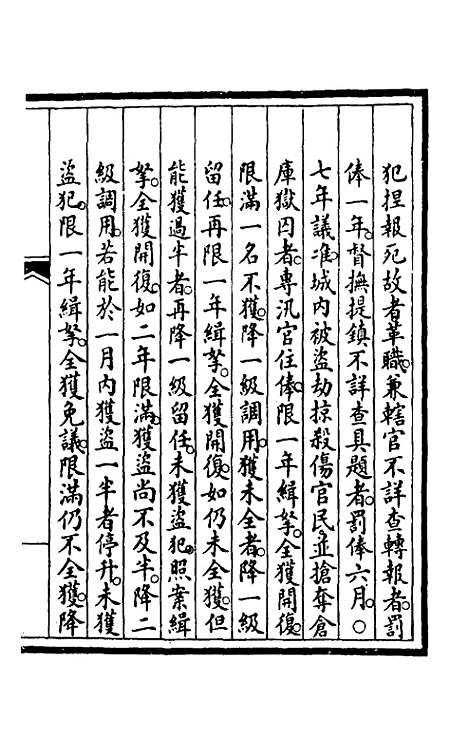 犯捏報死故者革職。兼轄官不詳查轉報者。罰
俸一年。督撫提鎮不詳查具題者。罰俸六月。○
七年議准。城內被盜劫掠殺傷官民並搶奪倉
庫獄囚者。專汛官住俸。限一年緝拏。全獲開復。
限滿一名不獲。降一級調用。獲未全者。降一級
留任。再限一年緝拏。全獲開復。如仍未全獲。但
能獲過半者。再降一級留任。未獲盜犯。照案緝
拏。全獲開復。如二年限滿。獲盜尚不及半。降二
級調用。若能於一月內獲盜一半者停升。未獲
盜犯。限一年緝拏。全獲免議。限滿仍不全獲。降